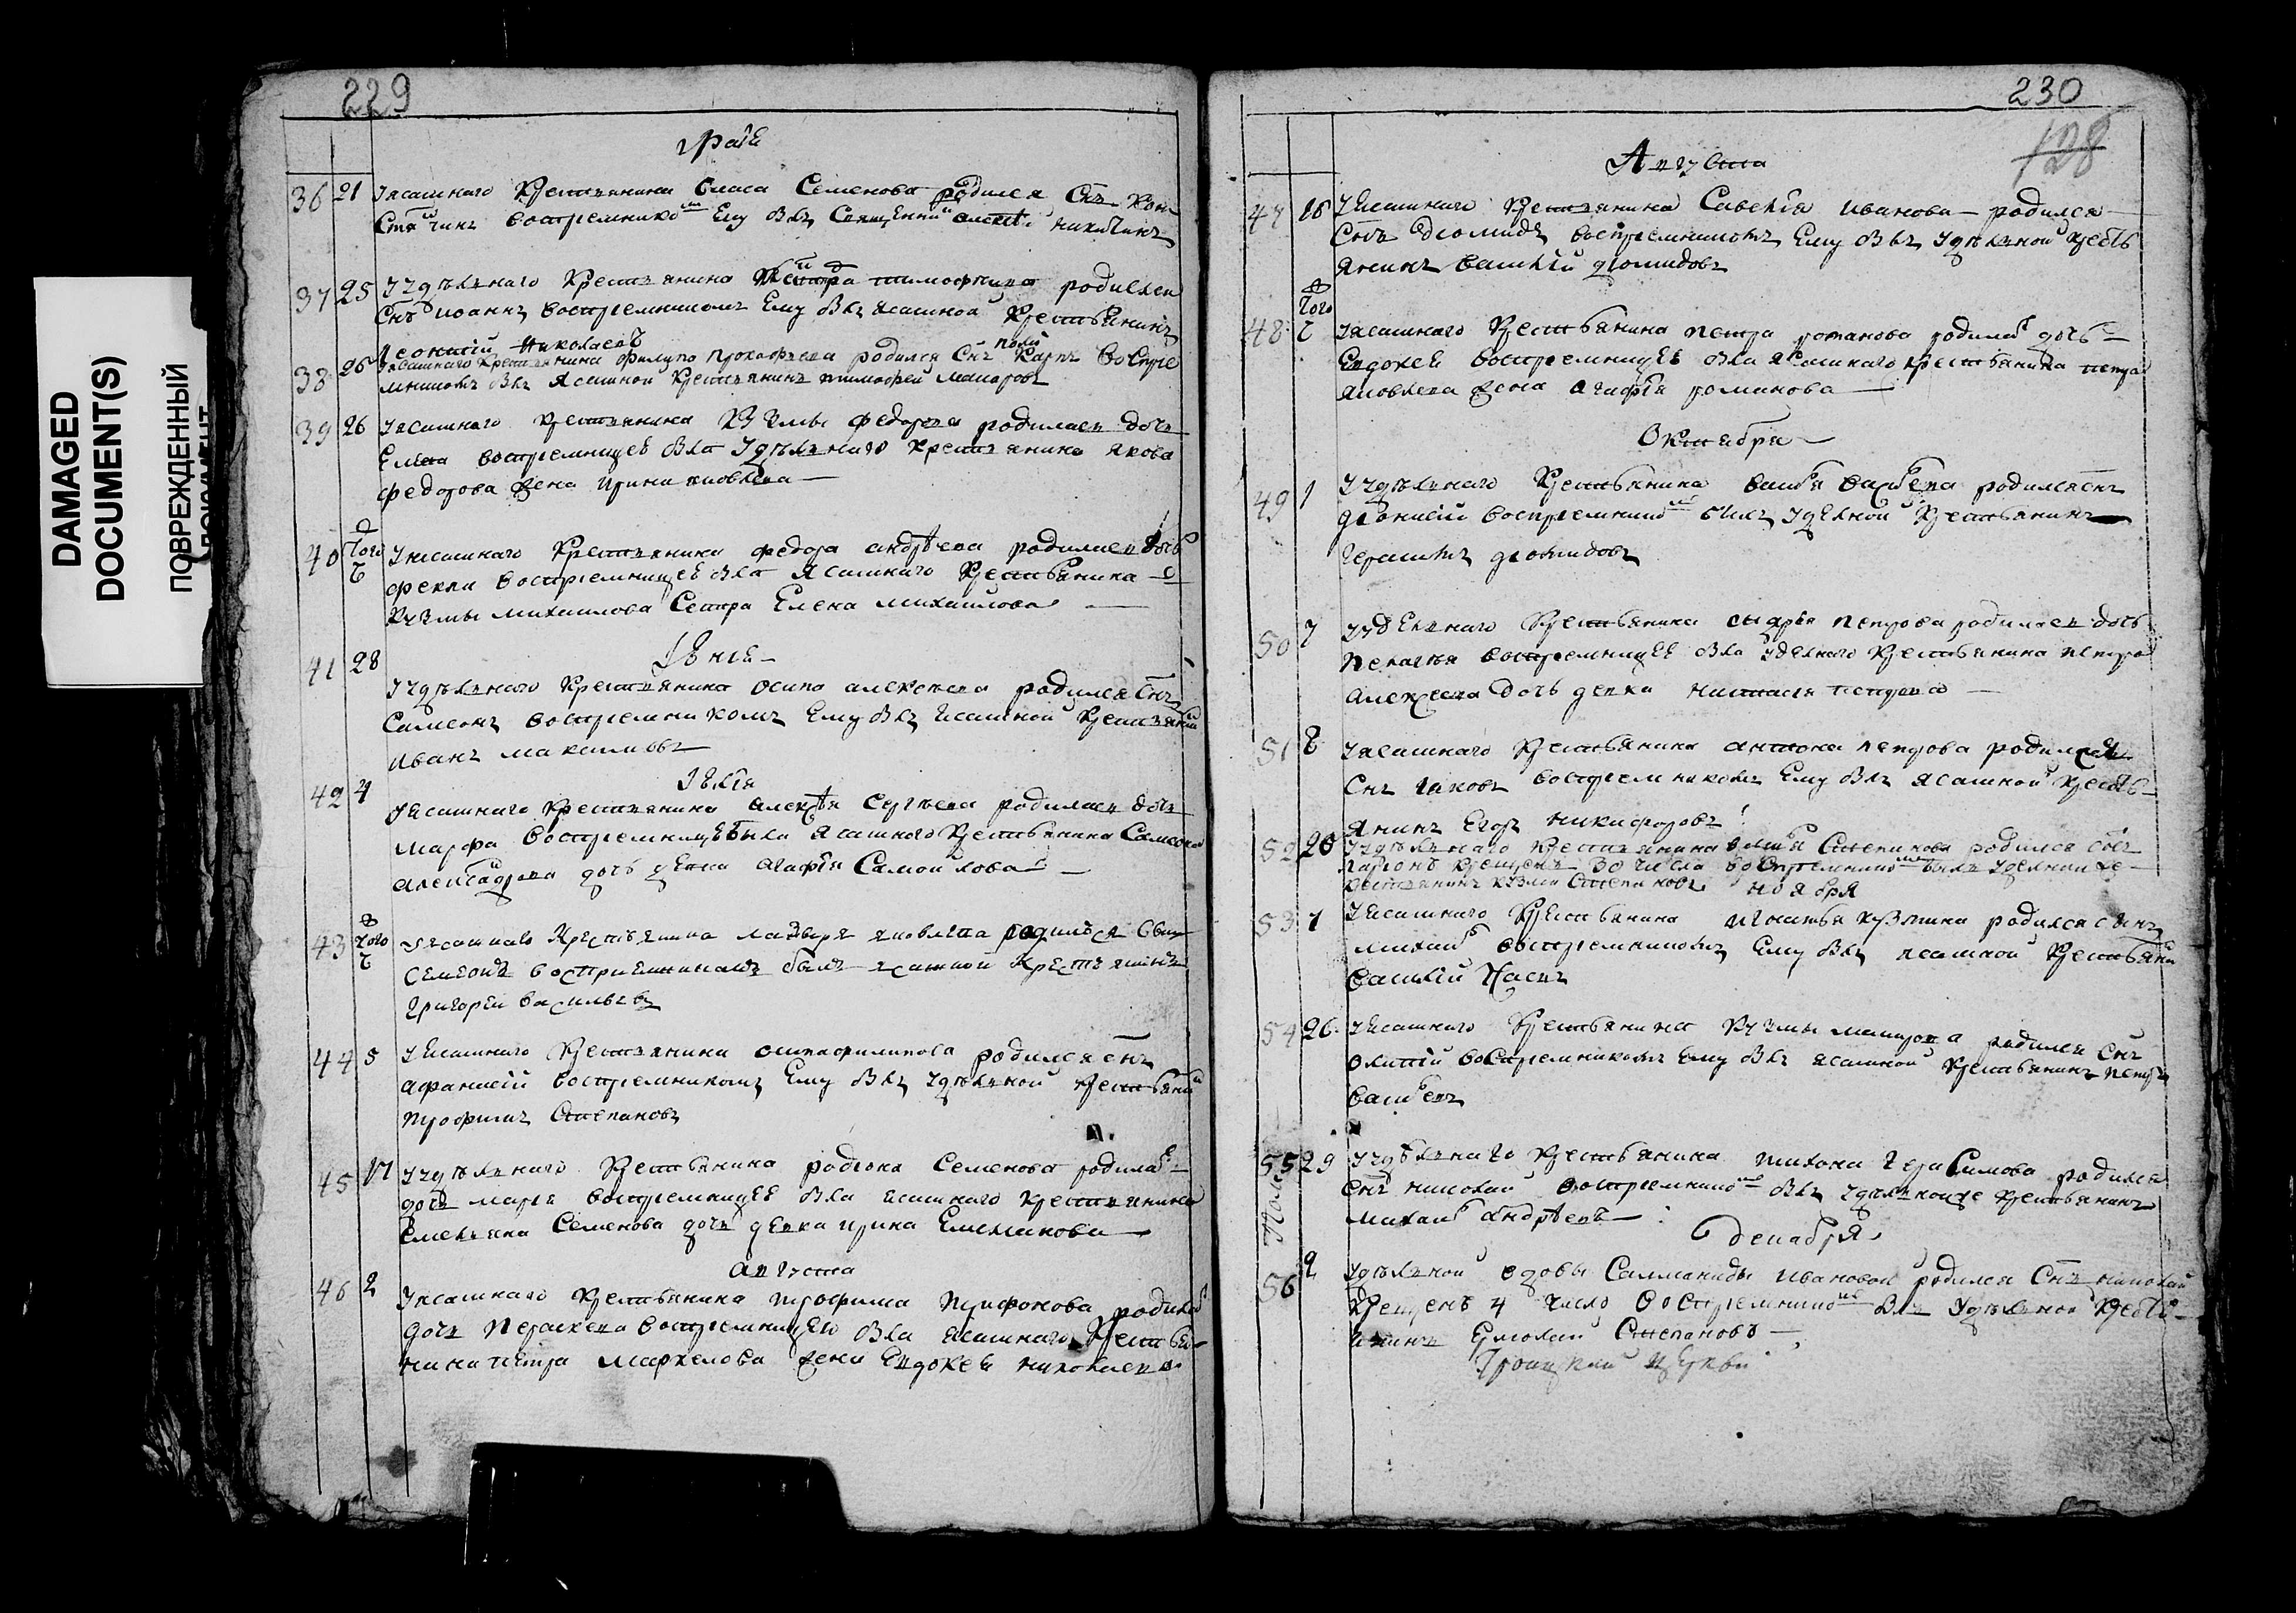 DAMAGED
DOCUMENT(S)
ПОВРЕЖДЕННЫЙ
ДОКУМЕНТ
229
маіе
36 21 У ясашнаго крестьянина Власа Семенова родился снъ Кон
стянтинъ воспремникомъ ему былъ священникъ Никитинъ
37 25 У удѣльнаго крестьянина родился
снъ Иоаннъ воспремникомъ ему былъ ясашной крестьянинъ
Леонтій Николаевъ
38 26 У ясашнаго крестьянина Филипа Прокофьева родился снъ Карпъ воспре
мникомъ былъ ясашной крестьянинъ Тимофей Макаровъ
39 26 У ясашнаго крестьянина Кузмы Федорова родилась дочь
Елена воспремницеѣ была удѣльнаго крестьянина Якова
Федорова жена Ирина Яковлева
40 того ж У ясашнаго крестьянина Федора Андрѣева родилась дочь
Фекла воспремницеѣ была ясашнаго крестьянина
Кузмы Михаилова сестра Елена Михаилова
Іюніа
41 28 У удѣльнаго крестьянина Осипа Алексѣева родился снъ
Самсонъ воспремникомъ ему былъ ясашной крестьянинъ
Иванъ Максимовъ
Іюліа
42 4 У ясашнаго крестьянина Алексѣя Сергѣева родилась дочь
Марфа воспремницеѣ была ясашного крестьянина Самсона
Александрова дочь девка Агафія Самойлова
43 того ж У ясашнаго крестьянина Лазаря Яковлева родился сынъ
Семеонъ восприемникамъ былъ ясашной крестьянинъ
Григореи Васильевъ
44 5 У ясашнаго крестьянина Осипа Филипова родился снъ
Афанасій воспремникомъ ему былъ удѣльной крестьянинъ
Трофимъ Степановъ
45 17 У удѣльнаго крестьянина Родіона Семенова родилась
дочь Марья воспремницеѣ была ясашнаго крестьянина
Емельяна Семенова дочь девка Ирина Емельянова
августа
46 2 У ясашнаго крестьянина Трофима Трифонова родилась
дочь Параскева воспремницею была ясашнаго крестья
нина Петра Маркелова жена Евдокея Николаева
230
128
Августа
47 16 У ясашнаго крестьянина Савелія Иванова родился
снъ Діомидъ воспремникомъ ему былъ удѣльной кресть
янинъ Василій Діомидовъ
48 того ж У ясашнаго крестьянина Петра Романова родилась дочь
Евдокея воспремницеѣ была ясашнаго крестьянина Петра
Яковлева жена Агафія Романова
Октября
49 1 У удѣльнаго крестьянина Василья Васильева родился снъ
Діонисій воспремникомъ былъ удѣлной крестьянинъ
Герасимъ Діомидовъ
50 7 У удельнаго крестьянина Петрова родилась дочь
Пелагея воспремницеѣ была уделнаго крестьянина Петра
Алексеева дочь девка Настасья Петрова
51 8 У ясашнаго крестьянина Антона Петрова родился
снъ Іаковъ воспремникомъ ему былъ ясашной кресть
янинъ Егоръ Никифоровъ
52 28 У удѣльнаго крестьянина Василья Степанова родился снъ
Ларіонъ крещенъ 30 числа воспремникомъ былъ уделной
крестьянинъ Кузма Степановъ ноября
53 1 У ясашнаго крестьянина Игнатья Кузмина родился сынъ
Михаилъ воспремникомъ ему былъ ясашной крестьянинъ
Василій
54 26 У ясашнаго крестьянина Кузмы родился снъ
воспремникомъ ему былъ ясашной крестьянинъ Петръ
Васильевъ
55 29 У удѣльнаго крестьянина Тихона Герасимова родился
снъ Николай воспремникомъ былъ удѣльной же крестьянинъ
Михаилъ Андрѣевъ
декабря
56 2 У удѣльной вдовы Саломаниды Ивановой родился снъ Николай
крещенъ 4 число воспремникомъ былъ удѣльной кресть
янинъ Ермолай Степановъ
Троицкии церкви